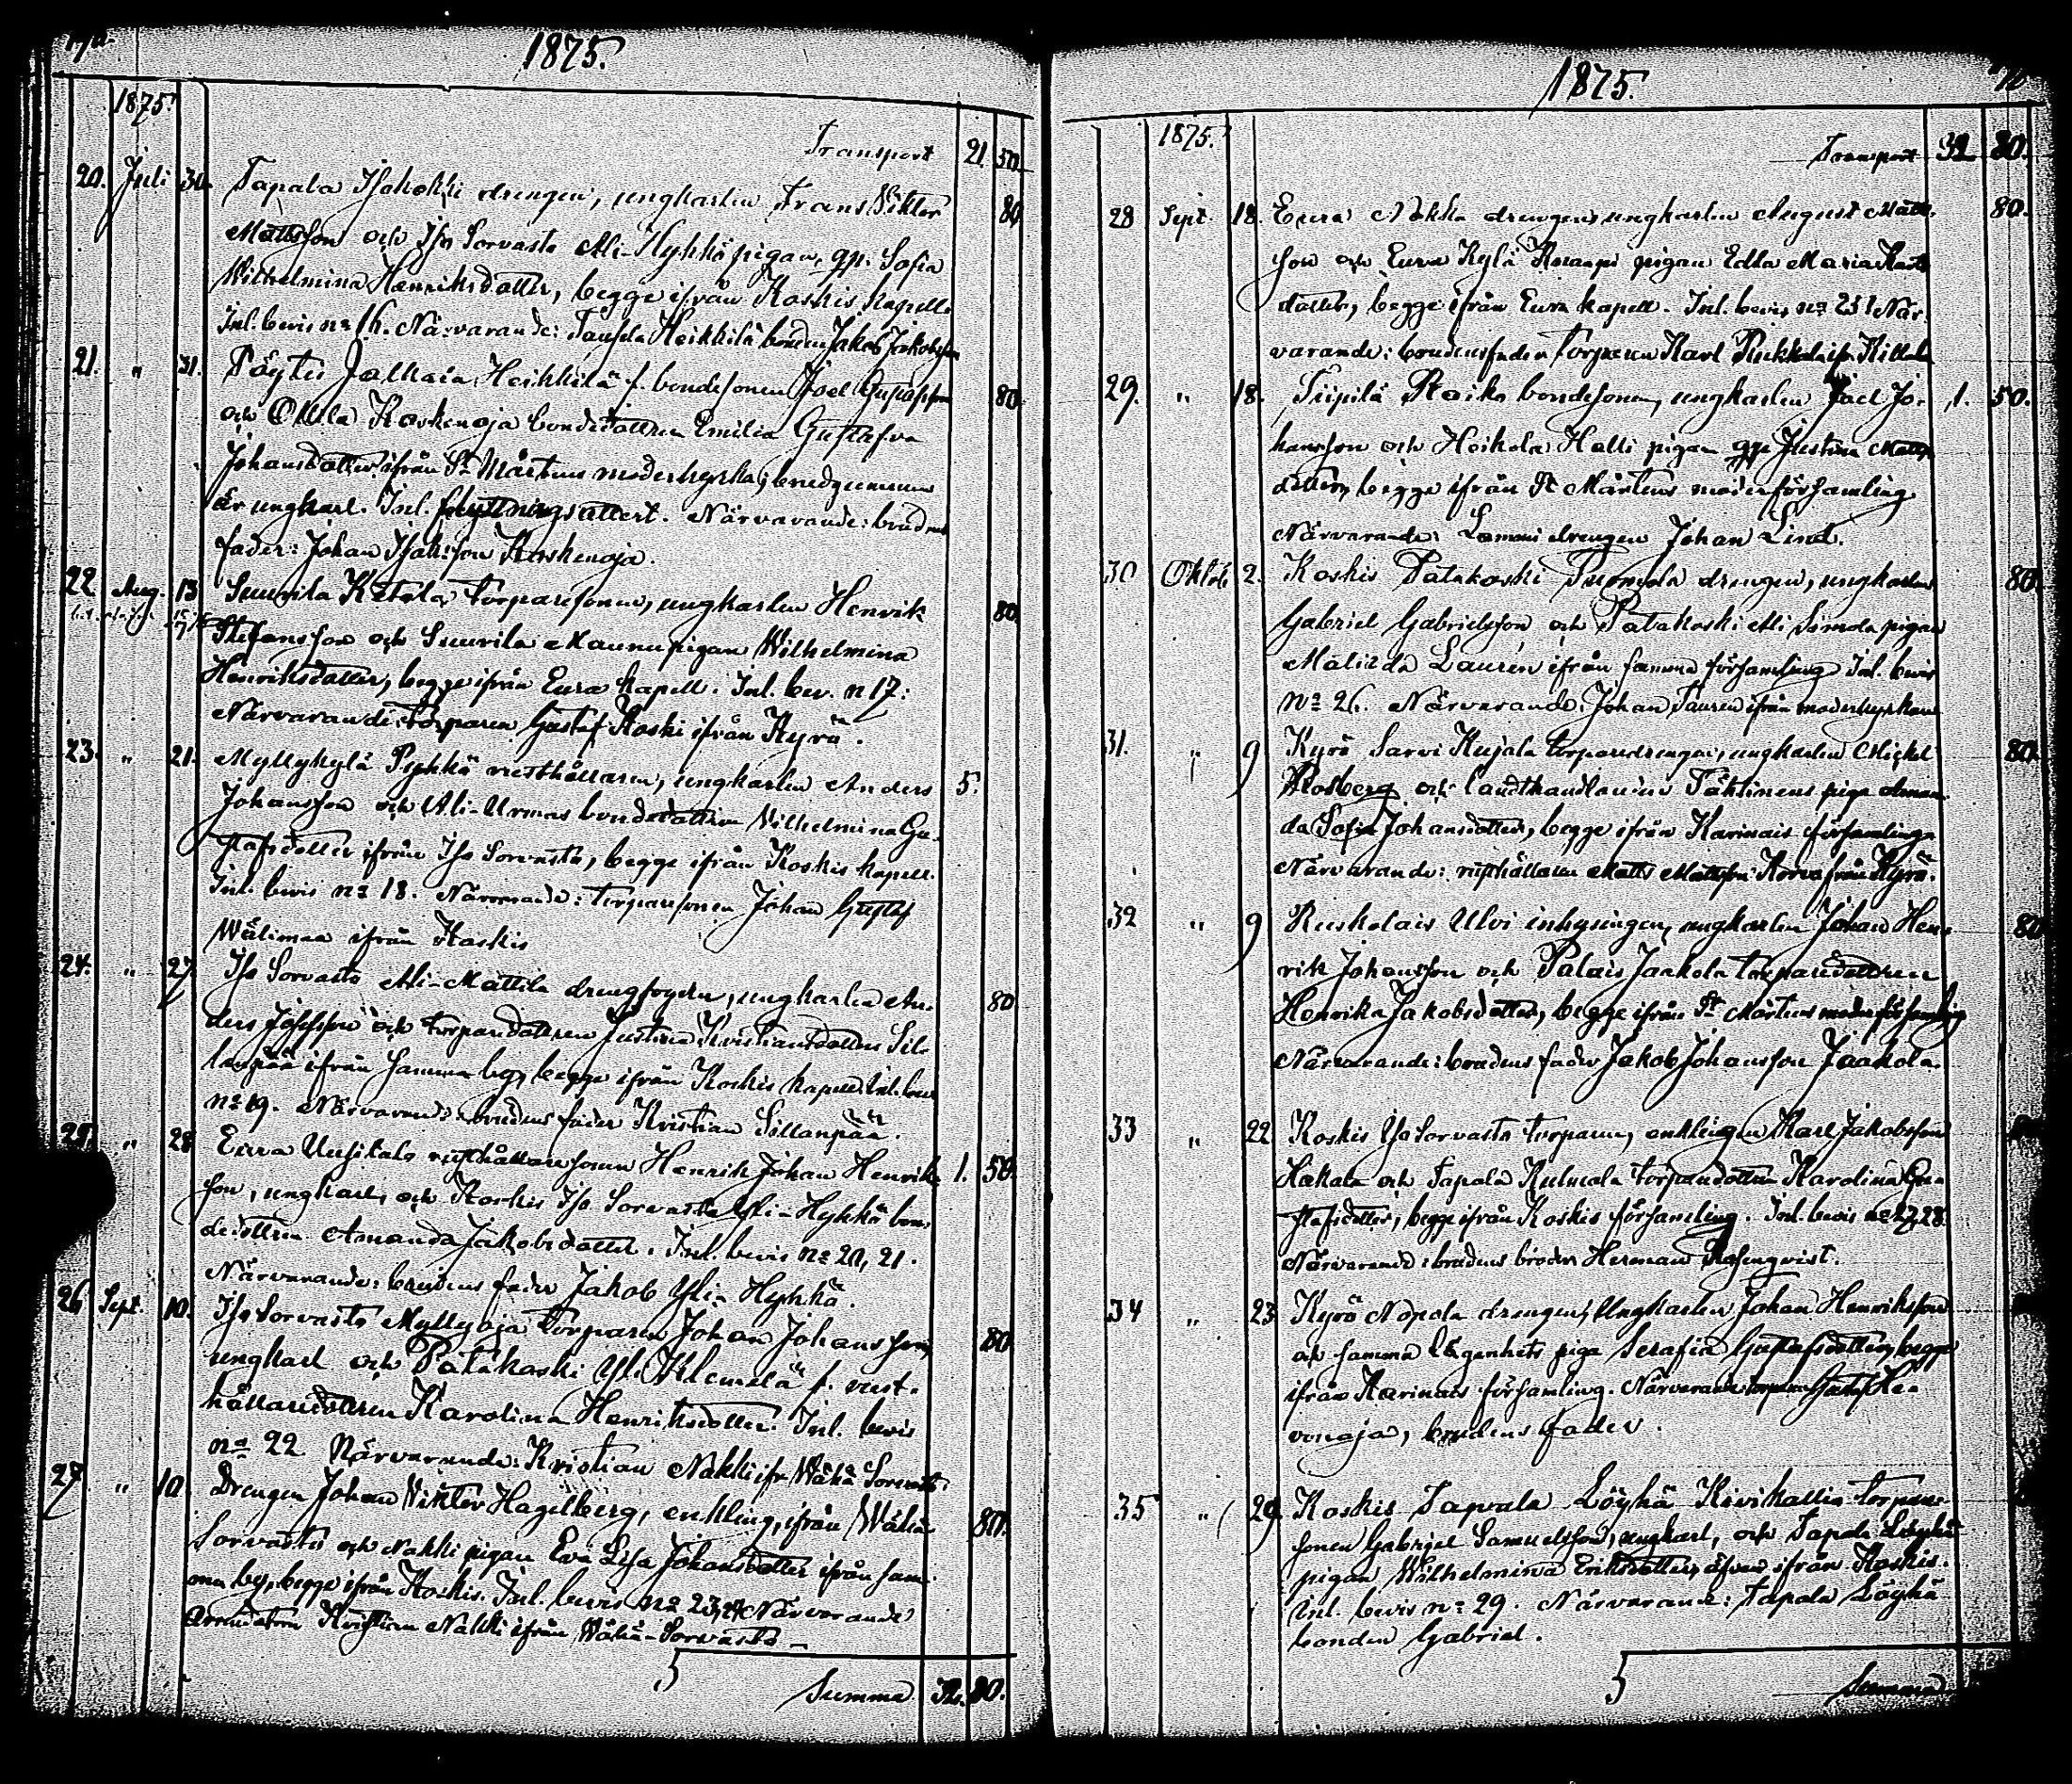 1875.
1875.
Transport 21. 50.
20. Juli 30. Tapala Isohokki drengen, ungkarlen Frans Viktor 80
Mattsson och Iso Sorvasto Ali-Hyhkö pigan, qp. Sofia
Wilhelmina Henriksdotter, begge ifrån Koskis kapell.
Inl. bevis no 16. Närvarande: Heikkilä bonden Jakob Jakobsson
21. " 31. Pöytis Heikkilä f. bondesonen Joel Gustafsson 80
och Ollila Koskenoja bondedottren Emilia Gustafva
Johansdotter ifrån St Mårtens moderkyrka; brudgummen
är ungkarl. Inl. flyttningsattest. Närvarande: brudens
fader: Johan Isaksson Koskenoja.
22 Aug. 13 Suurila Ketola torparesonen, ungkarlen Henrik 80
Stefansson och Suurila Maunu pigan Wilhelmina
Henriksdotter, begge ifrån Eura kapell. Inl. bev. n 17.
Närvarande: torparen Gustaf Koski ifrån Kyrö.
23. " 21. Myllykylä Pyhkö rusthållaren, ungkarlen Anders 5.
Johansson och Ali-Urmas bondedottren Wilhelmina Gu-
stafsdotter ifrån Iso Sorvasto, begge ifrån Koskis kapell.
Inl. bevis no 18. Närvarande: torparesonen Johan Gustaf
Wälimaa ifrån Koskis
24. " 27 Iso Sorvasto Ali-Mattila drengfogden, ungkarlen An- 80
ders Josefsson och torparedottren Justina Kristiansdotter Sil-
lanpää ifrån samma by, begge ifrån Koskis kapell. Inl. bevis
no 19. Närvarande: brudens fader Kristian Sillanpää.
25 " 28 Eura Uusitalo rusthållaresonen Henrik Johan Henriks- 1. 50.
son, ungkarl, och Koskis Iso Sorvasto Yli-Hyhkö bon-
dedottren Amanda Jakobsdotter. Inl. bevis no 20, 21.
Närvarande: brudens fader Jakob Yli-Hyhkö.
26 Sept. 10. Iso Sorvasto Myllyoja torparen Johan Johansson, 80.
ungkarl och Patakoski Yli Klemelä f. rust-
hållaredottren Karolina Henriksdotter. Inl. bevis
no 22 Närvarande: Kristian Nakki ifr. Wähä Sorvasto.
27 " 10. Drengen Johan Viktor Hagelberg, enkling, ifrån Wähä 80.
Sorvasto och Nakki pigan Eva Lisa Johansdotter ifrån sam-
ma by, begge ifrån Koskis. Inl. bevis no 23, 24 Närvarande
Kristian Nakki ifrån Wähä-Sorvasto
Summa 32. 80.
1875.
1875.
Transport 32 80.
28 Sept. 18. Eura drengen, ungkarlen August Matts- 80.
son och Eura Kylä pigan Edla Maria
dotter, begge ifrån Eura kapell. Inl. bevis no 25 När-
varande: brudens fader torparen Karl
29. " 18. Tiipilä Raiko bondesonen, ungkarlen Joel Jo- 1. 50.
hansson och Heikola Halli pigan qp Justina Matts-
dotter, begge ifrån St Mårtens moderförsamling
Närvarande: drengen Johan Lind.
30 Oktob. 2. Koskis Patakoski Puomola drengen, ungkarlen 80.
Gabriel Gabrielsson och Patakoski Ali Simola pigan
Matilda Laurén ifrån samma församling Inl. bevis
no 26. Närvarande: Johan Laurén ifrån moderkyrkan
31. " 9 Kyrö Sarvi Kujala torparedrengen, ungkarlen Mickel 80.
Rosberg och landthandlanden Tähtinens piga Aman-
da Sofia Johansdotter, begge ifrån Karinais församling
Närvarande: rusthållaren Matts Mattsson Korva från Kyrö.
32 " 9 Ruskolais Ulvi inhysingen, ungkarlen Johan Hen- 80
rik Johansson och Palais Jaakola torparedottren
Henrika Jakobsdotter, begge ifrån St Mårtens moderförsamling
Närvarande: brudens fader Jakob Johansson Jaakola.
33 " 22 Koskis Iso Sorvasto torparen, enklingen Karl Jakobsson
Hakala och Tapala Kulmala torparedottren Karolina Gu-
stafsdotter, begge ifrån Koskis församling. Inl. bevis no 27, 28.
Närvarande: brudens broder Herman Rosenqvist.
34 " 23 Kyrö Nopola drengen, Ungkarlen Johan Henriksson
och samma lägenhets piga Serafia Gustafsdotter, begge
ifrån Karinais församling. Närvarande torparen Gustaf Ha-
vonoja, brudens fader.
35 " 29. Koskis Tapala Löyhä Kivikallio torpare-
sonen Gabriel Samuelsson, ungkarl, och Tapala Löyhä
pigan Wilhelmina Eriksdotter, äfven ifrån Koskis.
Inl. bevis no 29. Närvarande: Tapala Löyhä
bonden Gabriel.
Summa